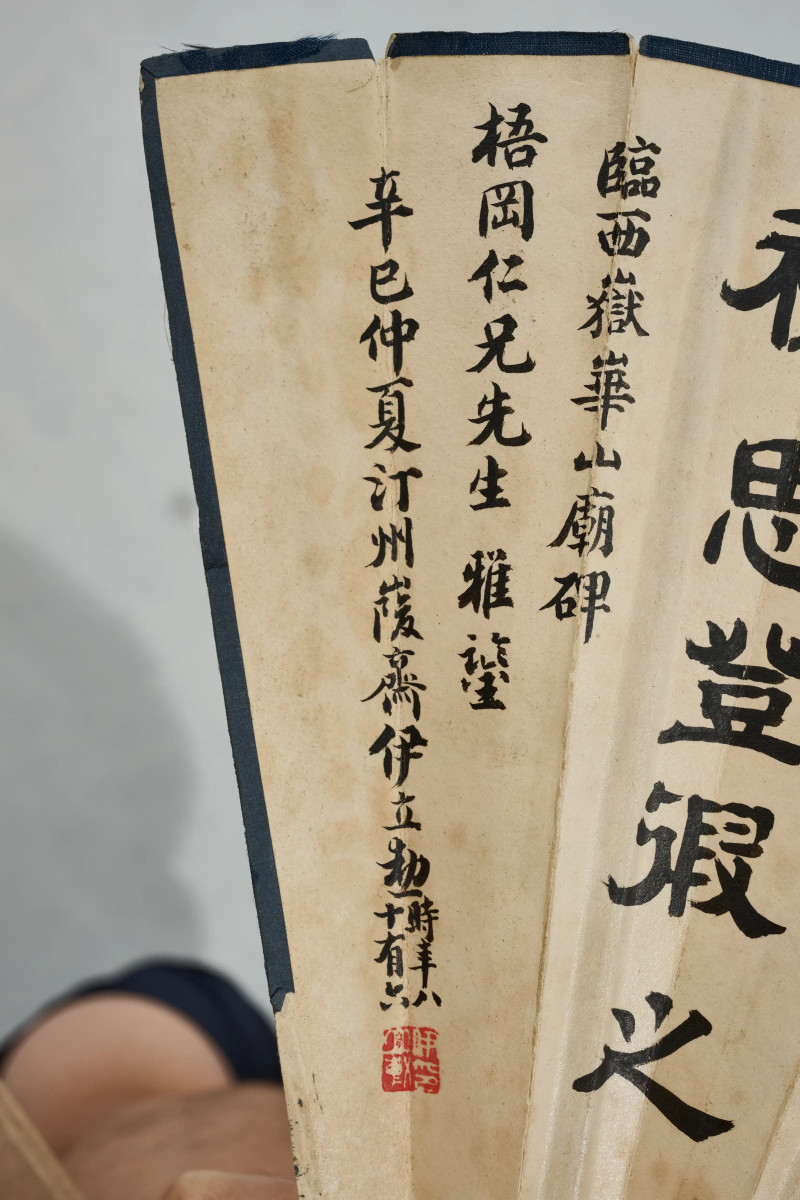 思登徦之
臨西嶽崋山廟碑
梧岡仁兄先生 雅鑒
辛巳仲夏汀州峻齋伊立勳時年八十有六